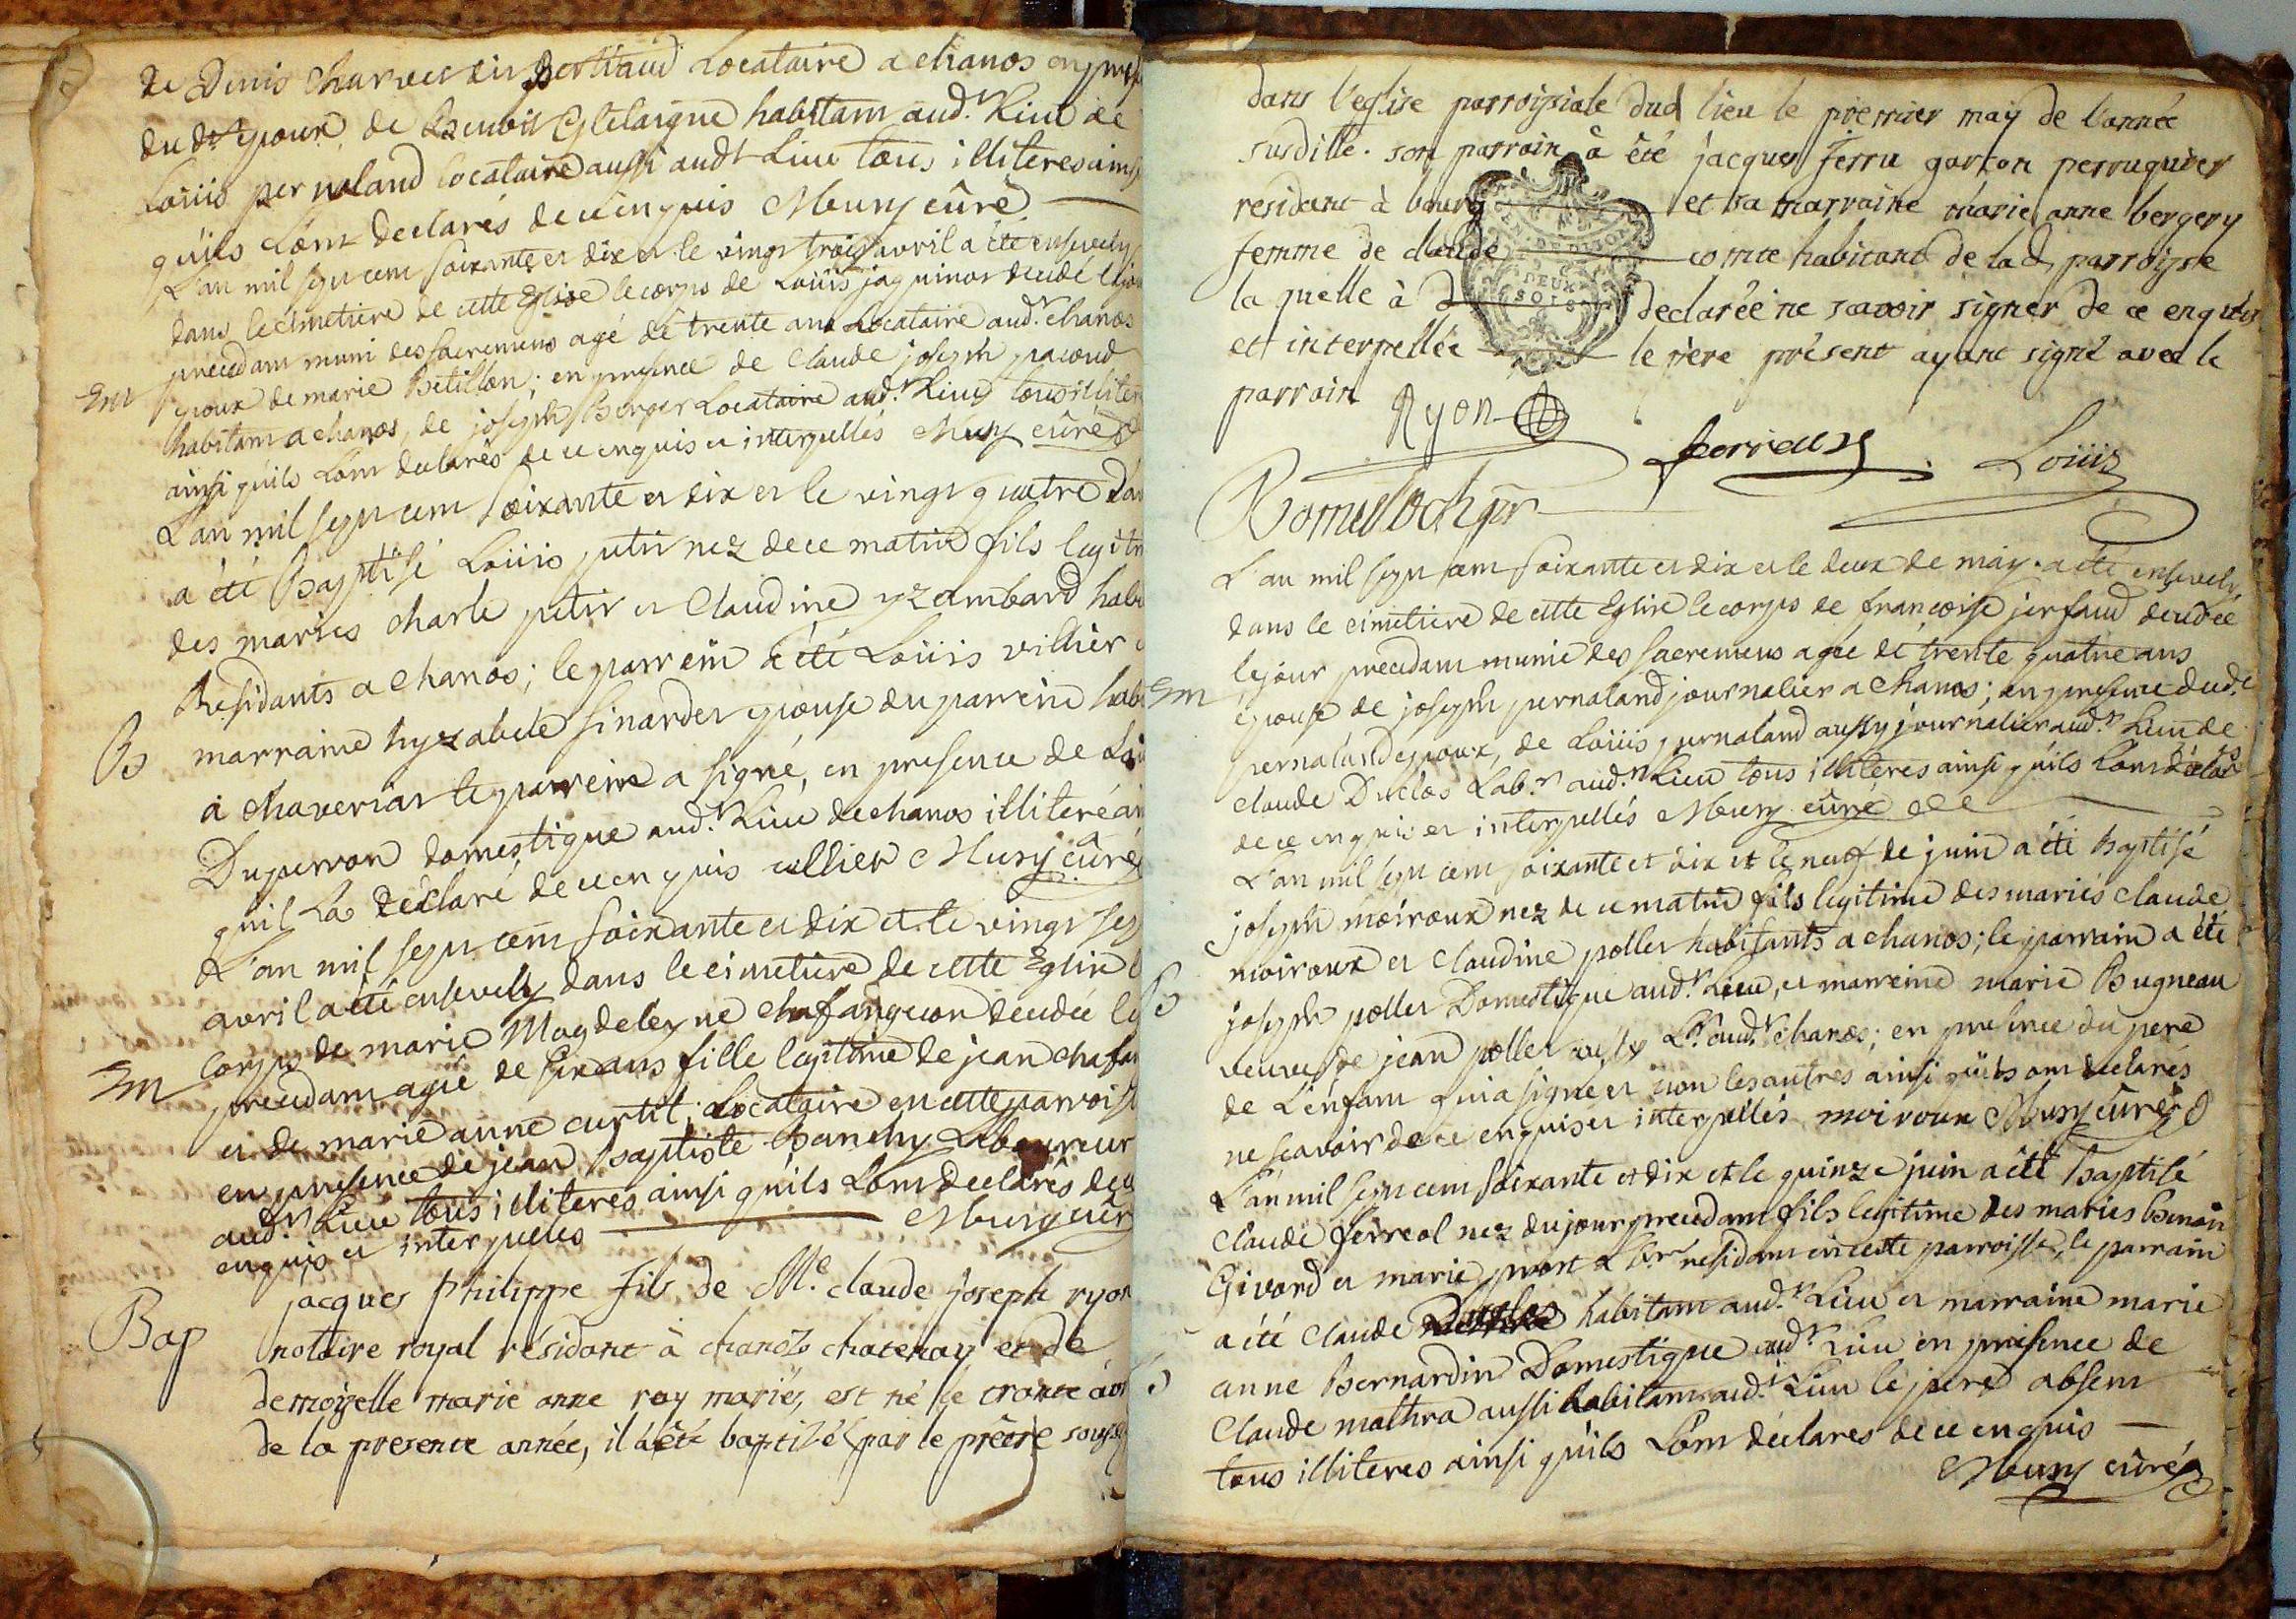 de Denis charvet dit Bertiaud Locataire a chanos en pres
du dt Epoux, de Benoit Gletaigne habitant aud.t Lieu de
Loüis pernoland locataire aussi audt Lieu tous illiteres ains
quils Lont declarés de ce enquis Mury cûré
L'an mil sept cent soixante et dix et le vingt trois avril a été ensevely
dans le cimetiere de cette Eglise le corps de Loüis jaquinot decedé le jou
precedam muni des sacremens agé de trente ans Locataire aud.t chanos
Em
epoux de marie Betillon; en presence de Claude joseph pacoud
habitant a chanos, de joseph Berger Locataire aud.t Lieu tous illiter
ainsi quils Lont declarés de ce enquis et interpellés Mury cûré
L'an mil sept cent soixante et dix et le vingt quatre d'av
a été Baptisé Loüis petit nez de ce matin fils legit
des mariés charle petit et Claudine yzambard hab
Residants a chanos; le parrein a été Loüis villier
B
marraine hyzabele sinardet epouse du parrein hab
a chaveriat le parrein a signé, en presence de Lo
Duperron domestique aud.t Lieu de chanos illiteré ai
quil La declaré de ce enquis villier Mury cûré
L'an mil sept cent soixante et dix et le vingt sep
avril a été ensevely dans le cimetiere de cette Eglise l
corps de marie Magdeleyne chafangeon decedée le
Em
precedam agée de six ans fille legitime de jean chafan
et de marie anne curtil; Locataire en cette parroiss
en presence de jean Baptiste banchy Laboureur
aud.t Lieu tous illiteres ainsi quils Lont declarés de c
enquis et interpellés Mury cûr
jacques philippe fils de Me. claude joseph ryon
Bap
notaire royal résidant à chanoz chatenay et de
demoiselle marie anne ray mariés, est né le trante avr
de la presente année, il a été baptisé par le prêtre soussig
dans l'eglise parroissiale dud lieu le premier may de l'année
susditte. son parrain à été jacques ferru garçon perruquier
residant à bourg et sa marraine marie anne bergery
femme de claude comte habitant de lad. parroisse
la quelle à declarée ne scavoir signer de ce enquise
et interpellée le père présent ayant signé avec le
parrain
Ryon
EN. DE DIJON
DEUX
SOLS
ferrieux
Loüis
L'an mil sept cent soixante et dix et le deux de may a été ensevely
dans le cimetiere de cette Eglise le corps de françoise jerfaud decedée
le jour precedam munie des sacremens agée de trente quatre ans
Em
épouse de joseph pernoland journalier a chanos; en presence dud.t
pernoland epoux, de Loüis pernoland aussy journalier aud.t Lieu de
claude Duclos Lab.r aud.t Lieu tous illiteres ainsi quils Lont declarés
de ce enquis et interpellés Mury cûré
L'an mil sept cent soixante et dix et le neuf de juin a été Baptisé
joseph moiroux nez de ce matin fils legitime des mariés claude
moiroux et claudine pollet habitants a chanos; le parrain a été
B
joseph pollet Domestique aud.t Lieu, et marreine marie Bugneau
veuve de jean pollet aussy L.r aud.t chanos; en presence du pere
de L'enfant qui a signé et non les autres ainsi quils ont declarés
ne scavoir de ce enquis et interpellés moiroux Mury cûré
L'an mil sept cent soixante et dix et le quinze juin a été Baptisé
Claude ferreol nez du jour precedam fils legitime des mariés Benoit
Givord et marie pront L.br residant en cette parroisse, le parrain
a été Claude Duclos habitant aud.t Lieu et marraine marie
B
anne Bernardin Domestique aud.t Lieu en presence de
Claude mathra aussi habitant aud.t Lieu le pere absent
tous illiteres ainsi quils Lont déclarés de ce enquis
Mury cûré